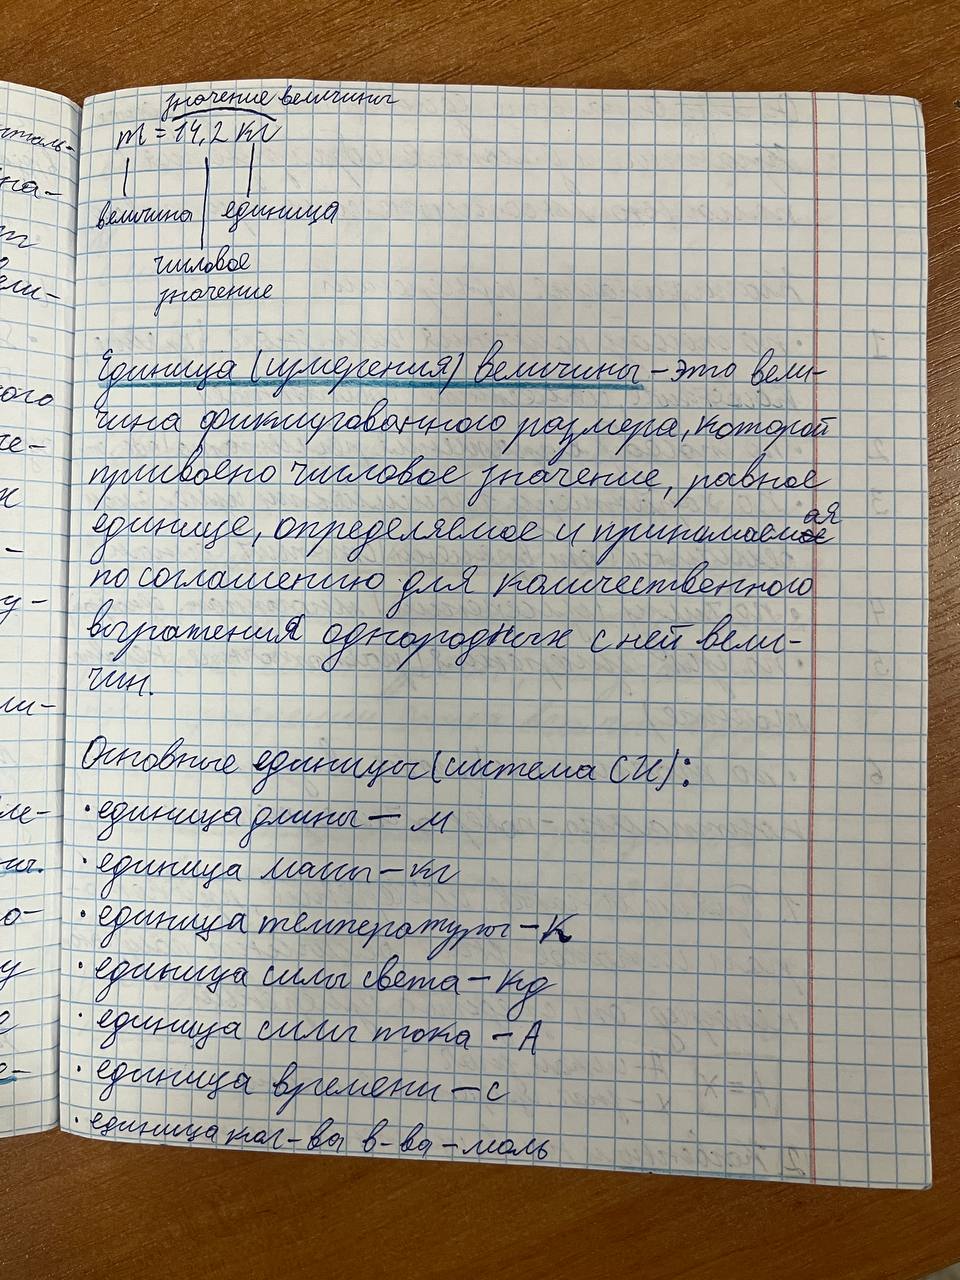 значение величины
m = 14,2 кг
величина единица
числовое
значение
Единица (измерения) величины – это вели-
чина фиксированного размера, которой
присвоено числовое значение, равное
единице, определяемое и принимаемая
по соглашению для количественного
выражения однородных с ней вели-
чин.
Основные единицы (система СИ):
· единица длины – м
· единица массы – кг
· единица температуры – К
· единица силы света – кд
· единица силы тока – А
· единица времени – с
· единица кол-ва в-ва – моль